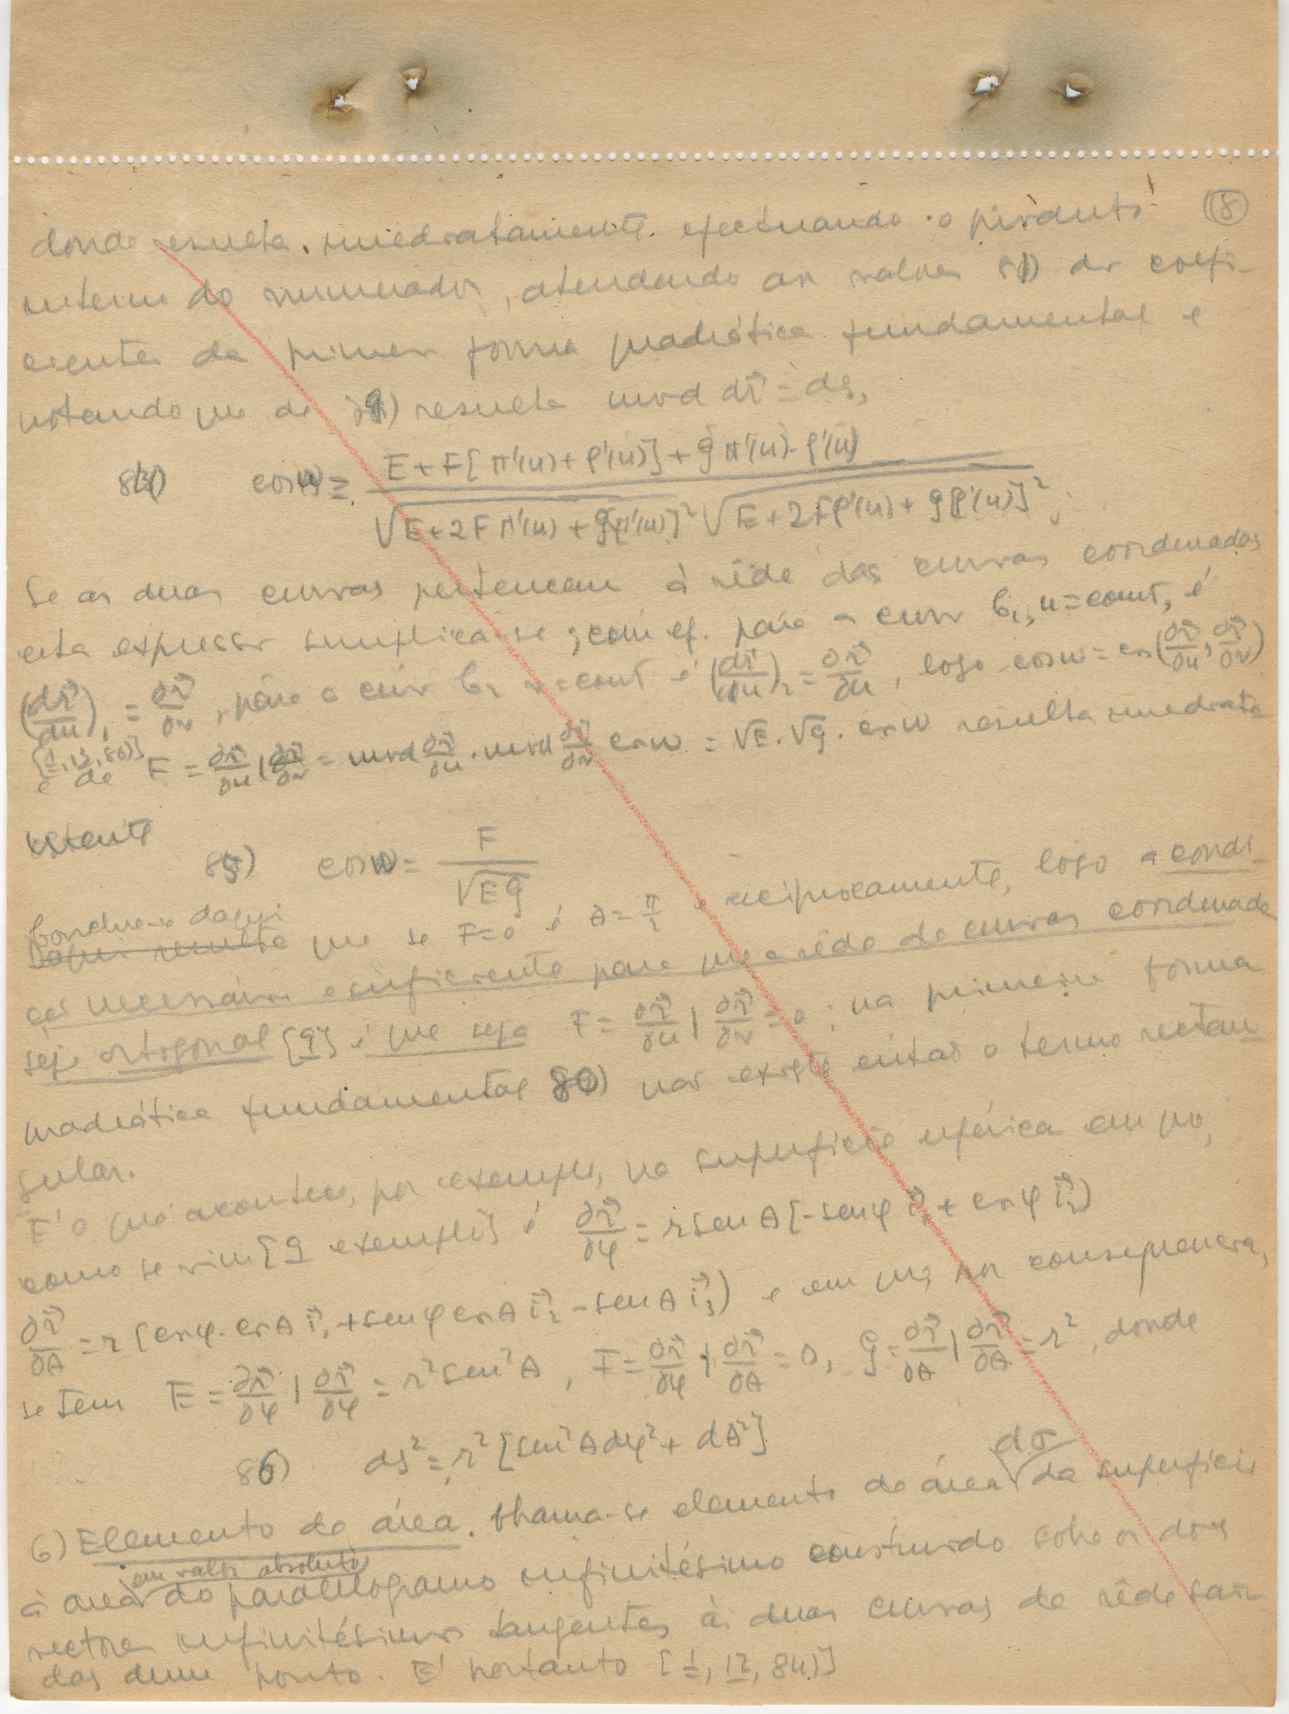 18
donde resulta imediatamente efectuando o produto
interno do numerador, atendendo aos valores 81) dos coefi-
cientes da primeira forma quadrática fundamental e
notando que de resulta mod dr⃗ = ds,
84) cos ω = (E + F[π'(u) + ρ'(u)] + G π'(u)·ρ'(u)) / (√(E + 2Fπ'(u) + G[π'(u)]²) √(E + 2Fρ'(u) + G[ρ'(u)]²);
Se as duas curvas pertencem à rêde das curvas coordenadas
esta expressão simplica-se; com ef. para a curva C₁, u = const, é
(dr⃗/du)₁ = ∂r⃗/∂v, para a curva C₂ v = const é (dr⃗/du)₂ = ∂r⃗/∂u, logo cos ω = cos(∂r⃗/∂u, ∂r⃗/∂v)
e de [1, 12, 80)] F = ∂r⃗/∂u | ∂r⃗/∂v = mod ∂r⃗/∂u · mod ∂r⃗/∂v cos ω = √E · √G · cos ω resulta imediata
85) cos ω = F / √EG
Conclue-se daqui
Daqui resulta que se F = 0 é θ = π/2 e reciprocamente, logo a condi-
ção necessária e suficiente para que a rêde de curvas coordenadas
seja ortogonal [9] é que seja F = ∂r⃗/∂u | ∂r⃗/∂v = 0; na primeira forma
quadrática fundamental 80) não existe então o termo rectan
gular.
É o que acontece, por exemplo, na superfície esférica em que,
como se viu [9 exemplo] é ∂r⃗/∂φ = r sen θ [-sen φ i⃗₁ + cos φ i⃗₂)
∂r⃗/∂θ = r (cos φ · cos θ i⃗₁ + sen φ cos θ i⃗₂ - sen θ i⃗₃) e em que, por consequencia,
se tem E = ∂r⃗/∂φ | ∂r⃗/∂φ = r² sen² θ, F = ∂r⃗/∂φ | ∂r⃗/∂θ = 0, G = ∂r⃗/∂θ | ∂r⃗/∂θ = r², donde
86) ds² = r² [sen² θ dφ² + dθ²]
6) Elemento de área. Chama-se elemento de área dσ da superfície
à área em valor absoluto do paralelogramo infinitésimo construido sobre os dois
vectores infinitésimos tangentes às duas curvas da rêde saí
das dum ponto. É portanto [1, 12, 84)]